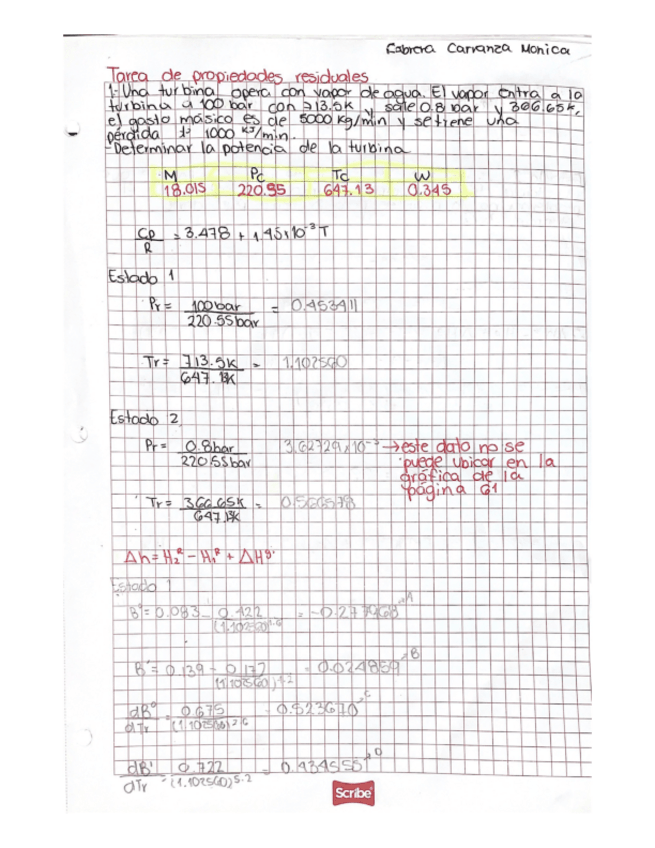 Cabrera Carranza Monica
Tarea de propiedades residuales
1. Una turbina opera con vapor de agua. El vapor entra a la
turbina a 100 bar con 713.5K y sale 0.8 bar y 366.65K,
el gasto másico es de 5000 kg/min y se tiene una
pérdida de 1000 KJ/min.
- Determinar la potencia de la turbina
M Pc Tc W
18.015 220.55 647.13 0.345
Cp/R = 3.478 + 1.45x10^-3 T
Estado 1
Pr = 100bar / 220.55bar = 0.453411
Tr = 713.5K / 647.13K = 1.102560
Estado 2
Pr = 0.8bar / 220.55bar 3.62729x10^-3 → este dato no se
puede ubicar en la
gráfica de la
página 61
Tr = 366.65K / 647.13K = 0.566578
Δh = H₂ᴿ - H₁ᴿ + ΔH^g.i
Estado 1
B° = 0.083 - 0.422 / (1.102560)^1.6 = -0.277968 → A
B' = 0.139 - 0.172 / (1.102560)^4.2 = 0.024859 → B
dB°/dTr = 0.675 / (1.102560)^2.6 = 0.523670 → C
dB'/dTr = 0.722 / (1.102560)^5.2 = 0.434555 → D
Scribe